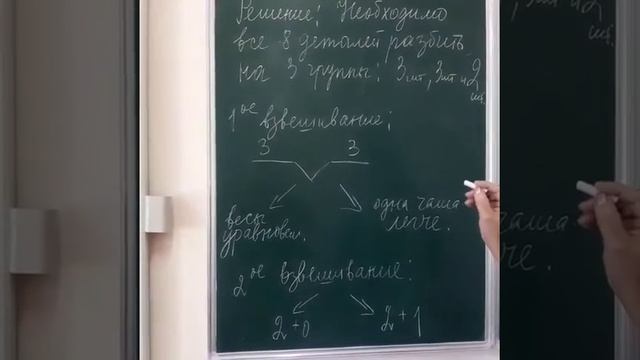 Решение: Необходимо
все 8 деталей разбить
на 3 группы: 3шт, 3шт и 2
шт.
1ое взвешивание:
3 3
весы одна чаша
уравновеш. легче.
2ое взвешивание:
2+0 2+1
чаша
че.